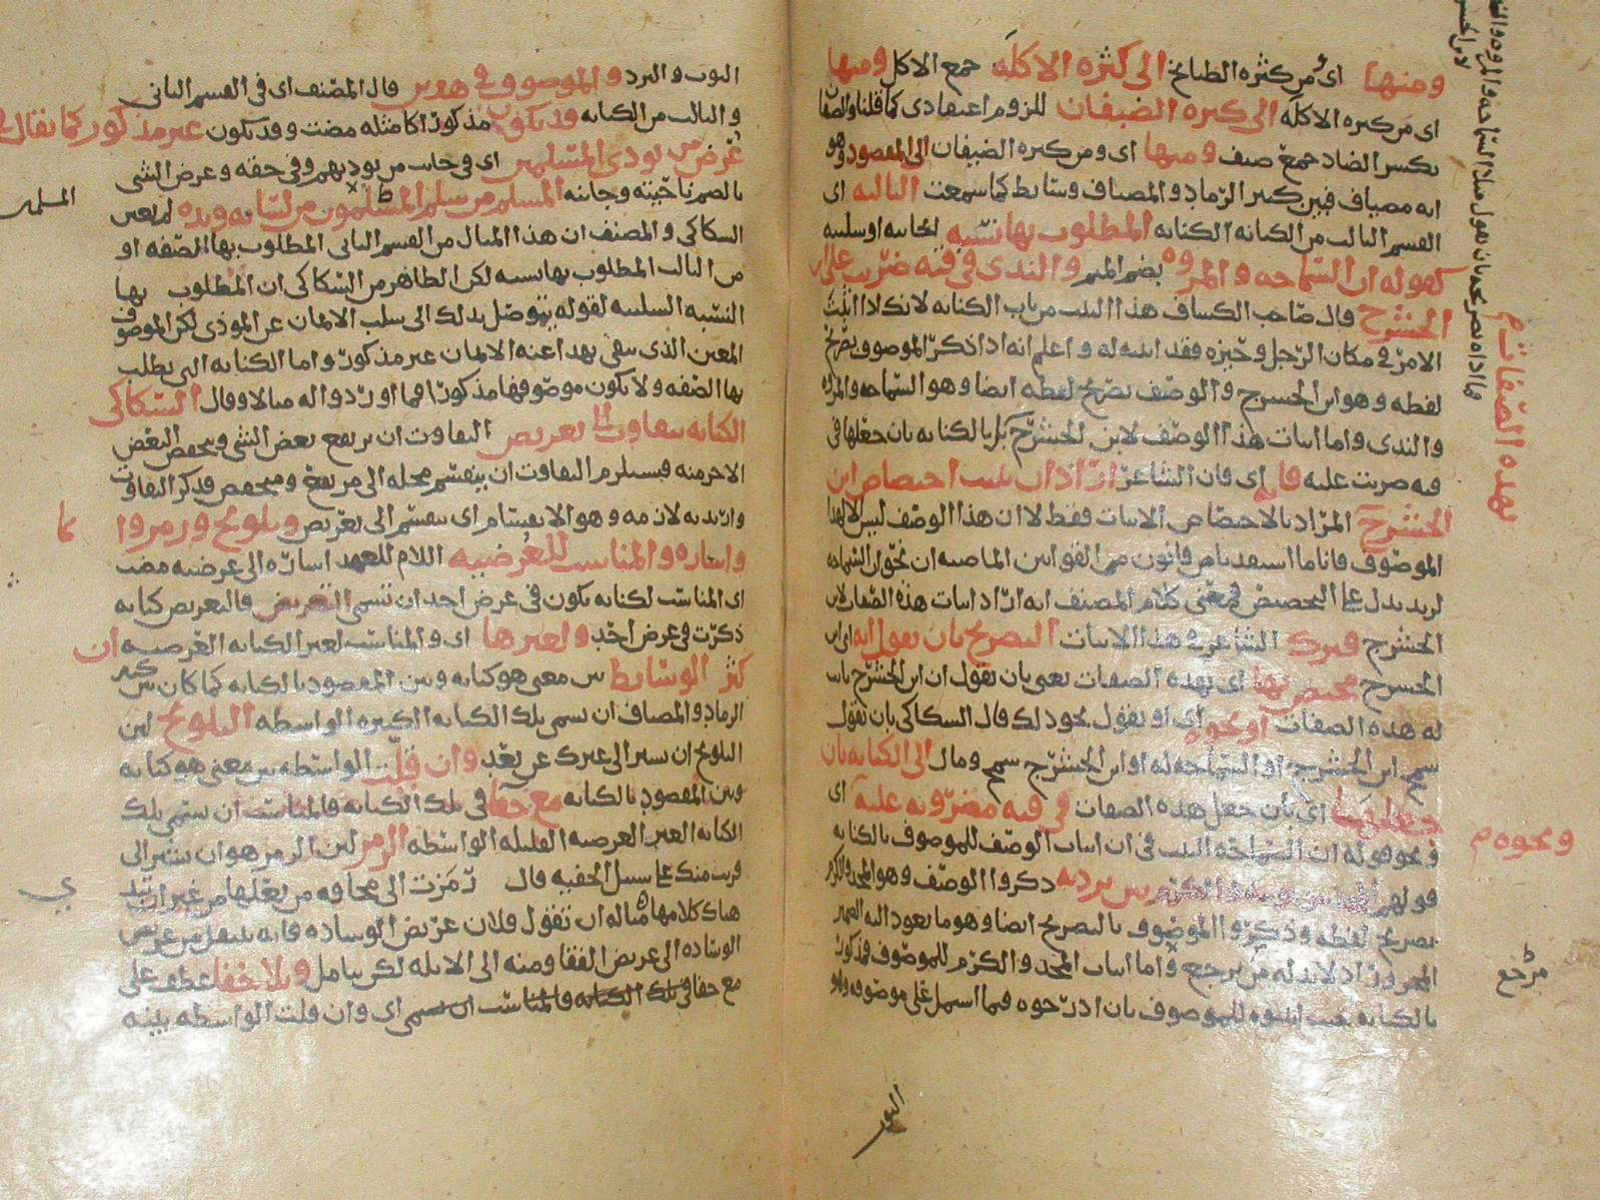 ومنها اى من كثره الطبايخ الى كثره الاكله جمع الاكل ومنها
اى من كثره الاكله الى كثره الضيفان للزوم اعتقادى كما قلنا والضيفان
بكسر الضاد جمع ضيف ومنها اى ومن كثره الضيفان الى المقصود وهو
انه مضياف فبين كثير الرماد والمضياف وسايط كما سمعت الثالثه اى
القسم الثالث من الكنايه الكنايه المطلوب بها نسبه ايجابيه او سلبيه
كقوله ان السماحه والمروه بضم الميم والندى فى قبه ضربت على ابن
الحشرج قال صاحب الكشاف هذا البيت من باب الكنايه لانك لا اثبت
الامر فى مكان الرجل وحيزه فقد اثبته له واعلم انه اذا ذكر الموصوف بصريح
لفظه وهو ابن الحشرج والوصف بصريح لفظه ايضا وهو السماحه والمروه
والندى واما اثبات هذا الوصف لابن الحشرج بل بالكنايه بان جعلها فى
قبه ضربت عليه فانه اى فان الشاعر اراد ان يثبت اختصاص ابن
الحشرج المراد بالاختصاص الاثبات فقط لا ان هذا الوصف ليس الا لهذا
الموصوف فانا ما استفدنا من قانون من القوانين الماضيه ان نحو ان السماحه
لزيد يدل على التخصيص فمعنى كلام المصنف انه اراد اثبات هذه الصفات لابن
الحشرج فترك الشاعر فى هذا الاثبات التصريح بان يقول انه اى ابن
الحشرج مختص بها اى بهذه الصفات يعنى بان يقول ان ابن الحشرج ثابت
له هذه الصفات او نحوه اى او يقول نحو ذلك قال السكاكى بان يقول
سمح ابن الحشرج او السماحه له او ابن الحشرج سمح ومال الى الكنايه بان
جعلها اى بان جعل هذه الصفات فى قبه مضروبه عليه اى
ونحو قوله ان السماحه البيت فى ان اثبات الوصف للموصوف بالكنايه
قولهم المجد بين ثوبيه والكرم بين برديه ذكروا الوصف وهو المجد والكرم
بصريح لفظه وذكروا الموصوف بالتصريح ايضا وهو ما يعود اليه الضمير
المجرور اذ لابد له من مرجع واما اثبات المجد والكرم للموصوف فمذكور
بالكنايه حيث اثبتوه للموصوف بان ادرجوه فيما اشتمل على موصوفه وهو
بهذه الصفات م
ونحوه م
مرجع
الثوب
الثوب والبرد والموصوف فى هذين قال المصنف اى فى القسم الثانى
والثالث من الكنايه قد يكون مذكورا كامثله مضت وقد يكون غير مذكور كما يقال فى
عرض من يوذى المسلمين اى فى جانب من يوذيهم وفى حقه وعرض الشى
بالضم ناحيته وجانبه المسلم من سلم المسلمون من لسانه ويده لم يعين
السكاكى والمصنف ان هذا المثال من القسم الثانى المطلوب بها الصفه او
من الثالث المطلوب بها نسبه لكن الظاهر من السكاكى ان المطلوب بها
النسبه السلبيه لقوله يتوصل بذلك الى سلب الايمان عن الموذى لكن الموصوف
المعين الذى ينفى بهذا عنه الايمان غير مذكور واما الكنايه التى يطلب
بها الصفه ولا يكون موصوفها مذكورا فما اوردوا له مثالا وقال السكاكى
الكنايه يتفاوت الى تعريض التفاوت ان يرتفع بعض الشى وينخفض البعض
الاخر منه فيستلزم التفاوت ان ينقسم محله الى مرتفع ومنخفض فذكر التفاوت
واريد به لازمه وهو الانقسام اى ينقسم الى تعريض وتلويح ورمز وايما
واشاره والمناسب للعرضيه اللام للعهد اشاره الى عرضيه مضت
اى المناسب لكنايه يكون فى عرض احد ان تسمى التعريض فالتعريض كنايه
ذكرت فى عرض احد ولغيرها اى والمناسب لغير الكنايه العرضيه ان
كثر الوسايط بين معنى هو كنايه وبين المقصود بالكنايه كما كان بين كثير
الرماد والمضياف ان تسمى تلك الكنايه الكثيره الواسطه التلويح لان
التلويح ان تشير الى غيرك عن بعد وان قلت الواسطه بين معنى هو كنايه
وبين المقصود بالكنايه مع خفا فى تلك الكنايه فالمناسب ان تسمى تلك
الكنايه الغير العرضيه القليله الواسطه الرمز لان الرمز هو ان تشير الى
قريب منك على سبيل الخفيه قال رمزت الى مخافه من بعلها من غير ان تبدى
هناك كلامها مثاله ان تقول فلان عريض الوساده فانه ينتقل من عريض
الوساده الى عريض القفا ومنه الى الابله لكن بتامل وبلا خفا عطف على
مع خفا فى تلك الكنايه فالمناسب ان تسمى اى وان قلت الواسطه بينه